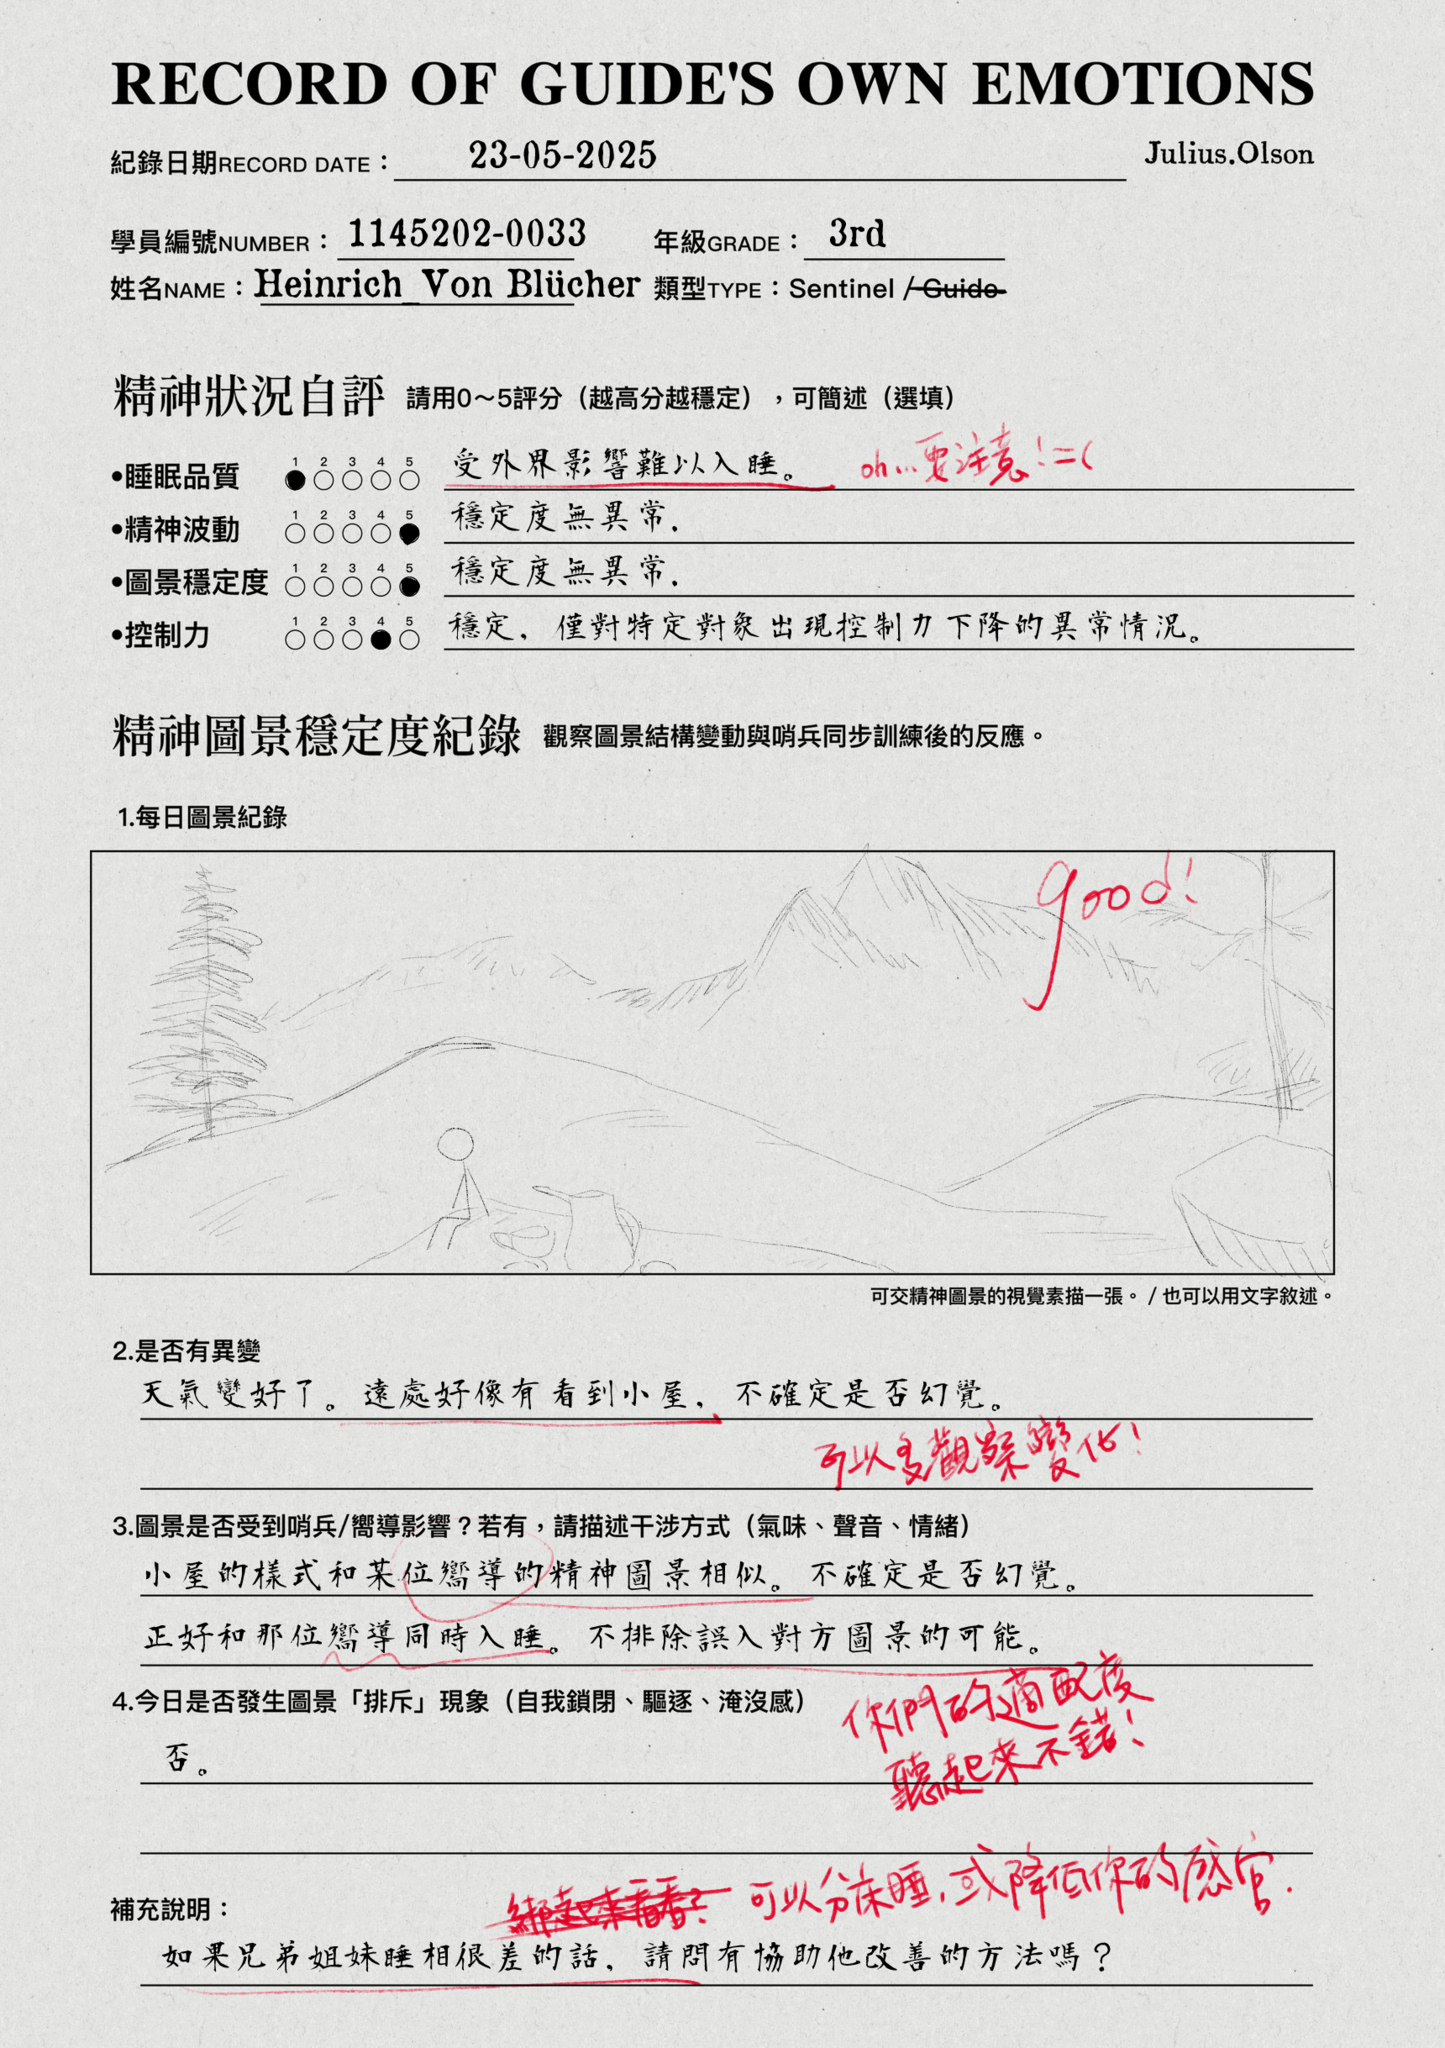 RECORD OF GUIDE'S OWN EMOTIONS
紀錄日期RECORD DATE： 23-05-2025 Julius.Olson
學員編號NUMBER： 1145202-0033 年級GRADE： 3rd
姓名NAME：Heinrich_Von Blücher 類型TYPE：Sentinel / Guide
精神狀況自評 請用0～5評分（越高分越穩定），可簡述（選填）
•睡眠品質 1 2 3 4 5 受外界影響難以入睡。 oh...要注意！=(
•精神波動 1 2 3 4 5 穩定度無異常.
•圖景穩定度 1 2 3 4 5 穩定度無異常.
•控制力 1 2 3 4 5 穩定，僅對特定對象出現控制力下降的異常情況。
精神圖景穩定度紀錄 觀察圖景結構變動與哨兵同步訓練後的反應。
1.每日圖景紀錄
good!
可交精神圖景的視覺素描一張。 / 也可以用文字敘述。
2.是否有異變
天氣變好了。遠處好像有看到小屋，不確定是否幻覺。
可以多觀察變化！
3.圖景是否受到哨兵/嚮導影響？若有，請描述干涉方式（氣味、聲音、情緒）
小屋的樣式和某位嚮導的精神圖景相似。不確定是否幻覺。
正好和那位嚮導同時入睡。不排除誤入對方圖景的可能。
4.今日是否發生圖景「排斥」現象（自我鎖閉、驅逐、淹沒感）
你們的適配度
聽起來不錯！
否。
綁起來看看？ 可以分床睡，或降低你的感官.
補充說明：
如果兄弟姐妹睡相很差的話，請問有協助他改善的方法嗎？